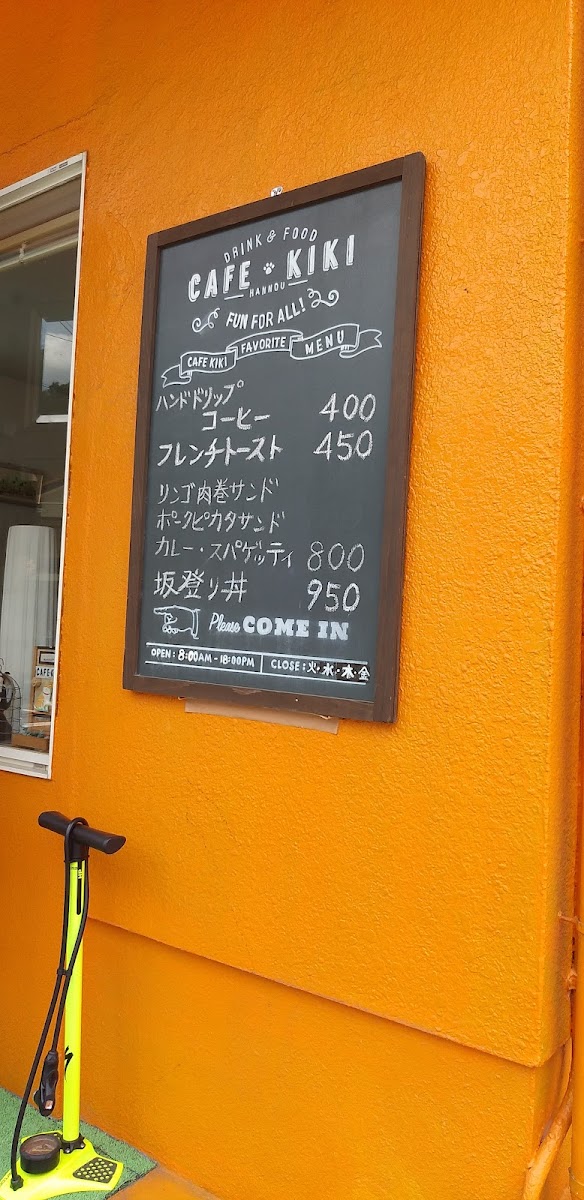 DRINK & FOOD
CAFE KIKI
HANNOU
FUN FOR ALL!
CAFE KIKI FAVORITE MENU
ハンドドリップ
コーヒー 400
フレンチトースト 450
リンゴ肉巻サンド
ポークピカタサンド
カレー・スパゲッティ 800
坂登り丼 950
Please COME IN
OPEN: 8:00AM - 18:00PM CLOSE: 火・水・木・金